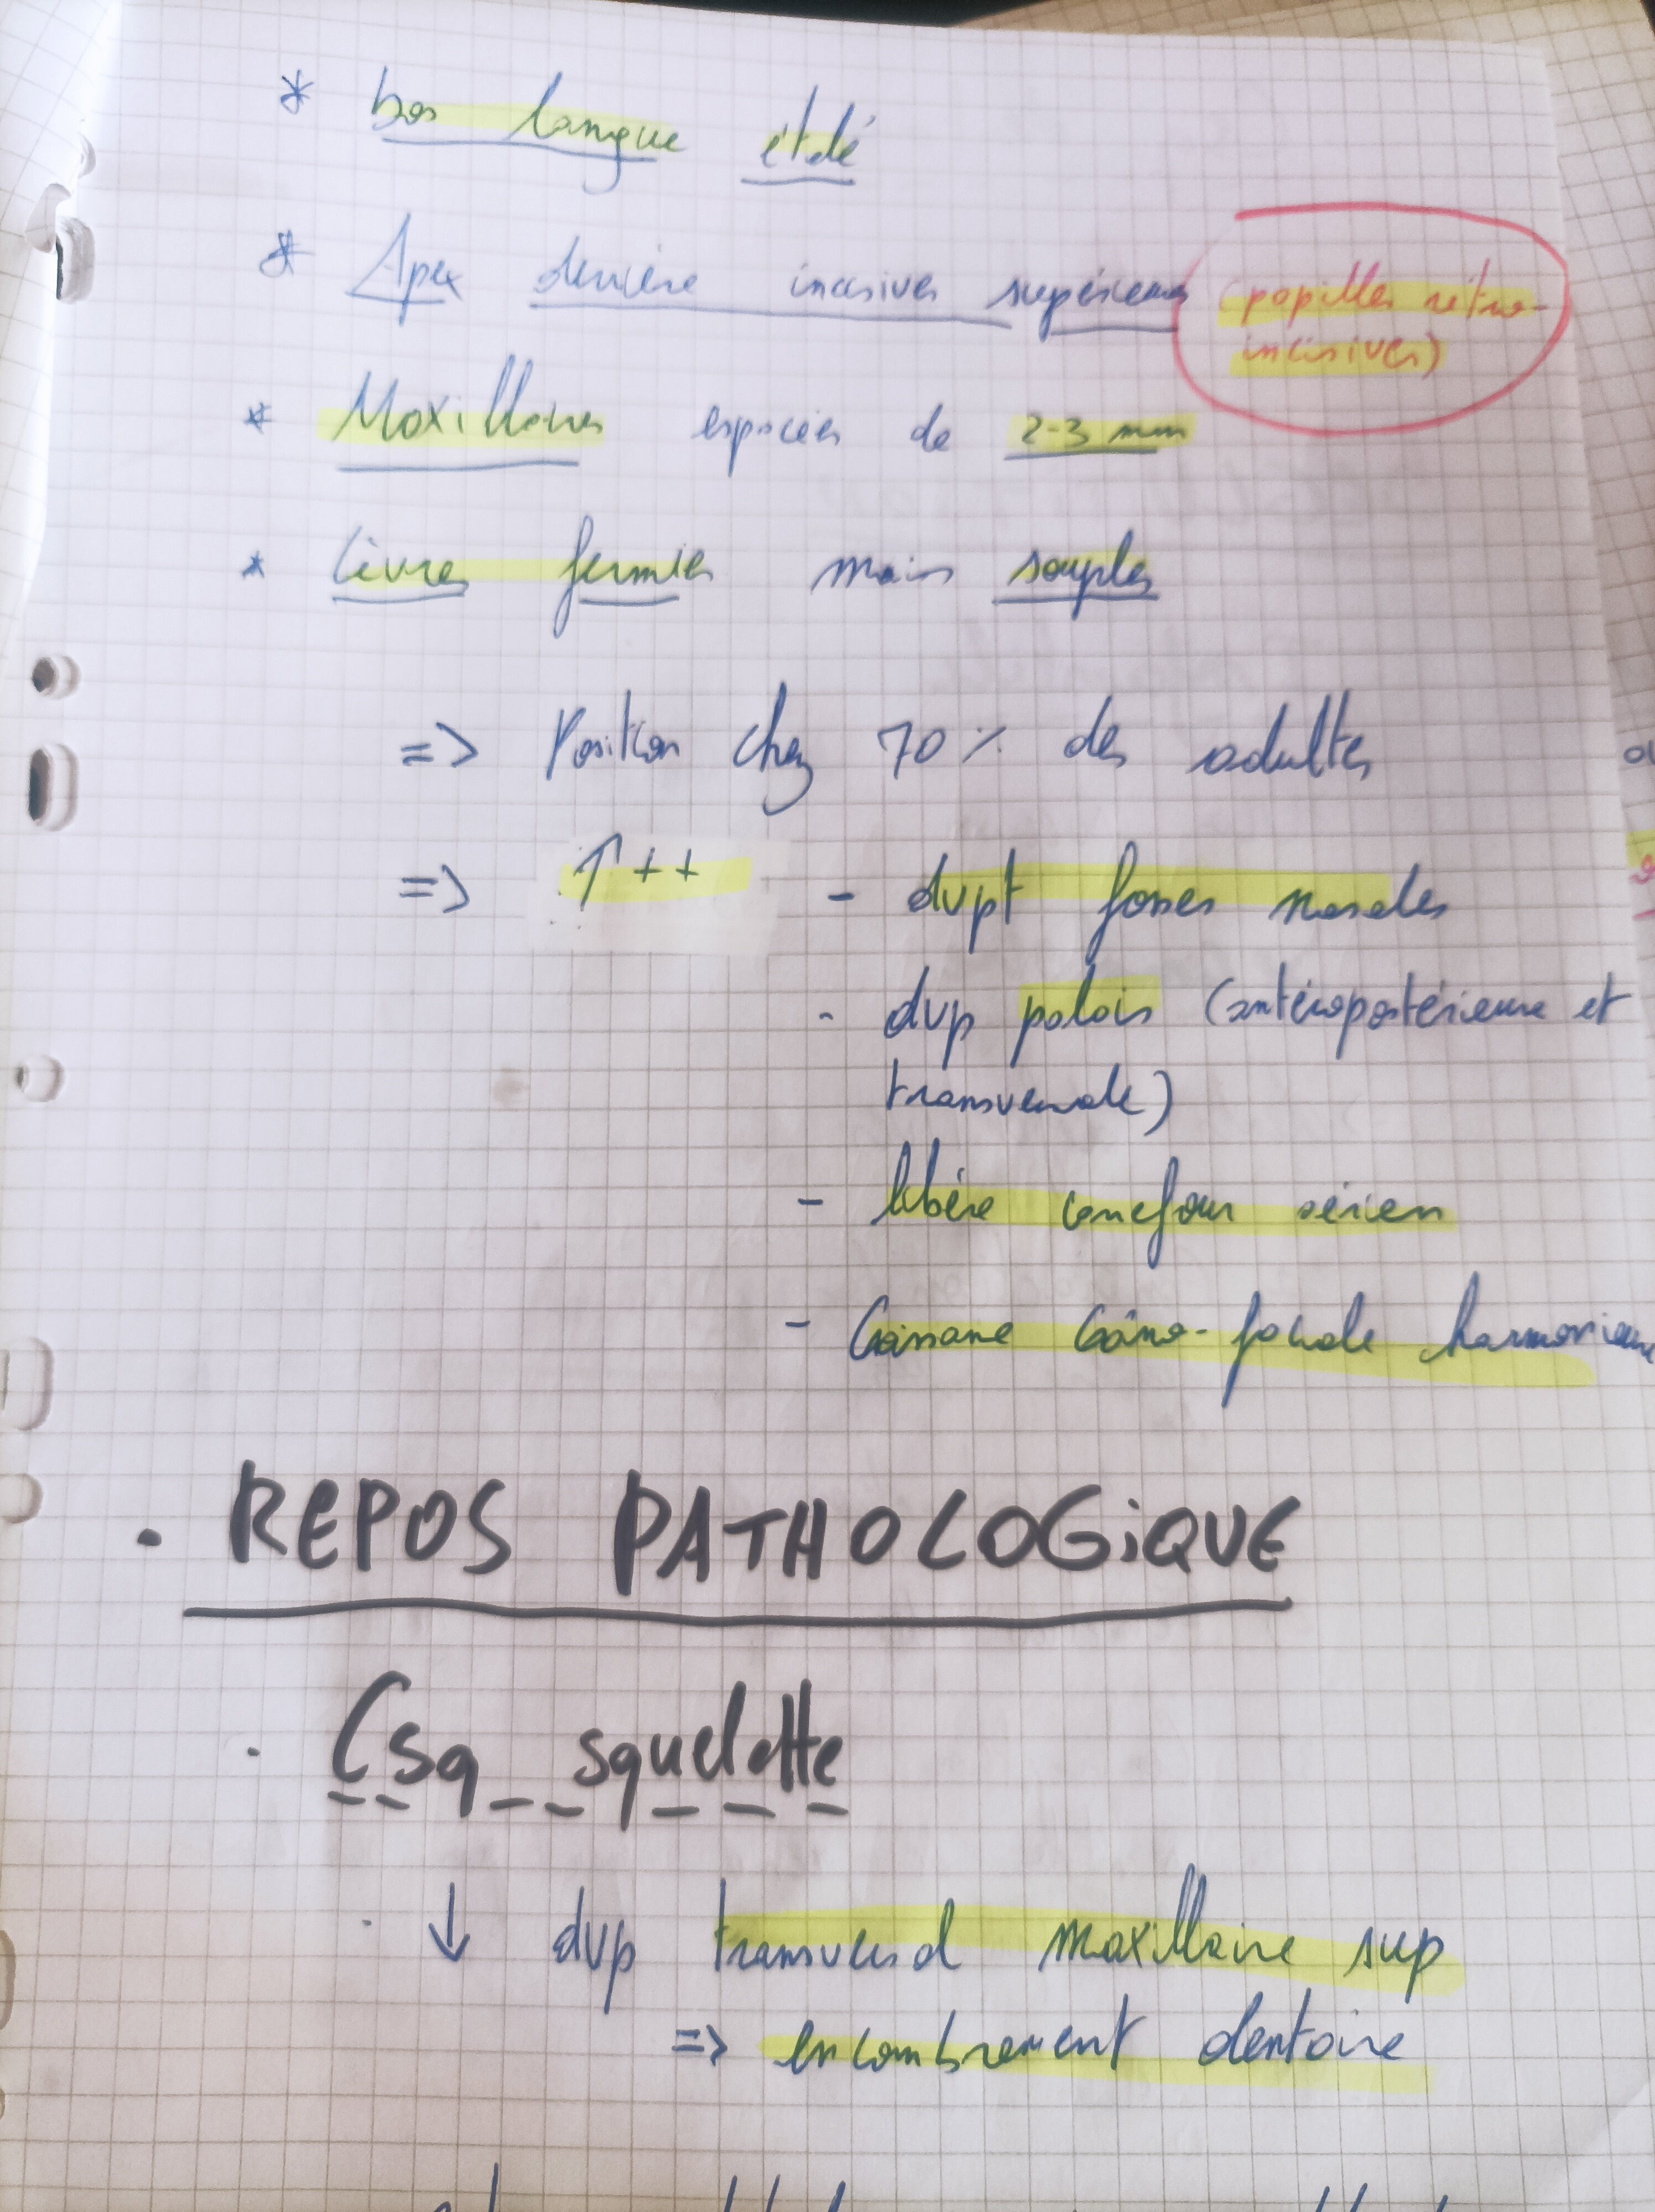 * bos langue étalé
* Apex derrière incisives supérieures (papilles rétro-
incisives)
* Maxillaires espacées de 2-3 mm
* Lèvres fermées mais souples
=> Position chez 70 % des adultes
=> ↑ ++ - dvpt fosses nasales
- dvp palais (antéropostérieure et
transversale)
- libère carrefour aérien
- Croissance crânio-faciale harmonieuse
. REPOS PATHOLOGIQUE
. Csq squelette
. ↓ dvp transversal maxillaire sup
=> encombrement dentaire